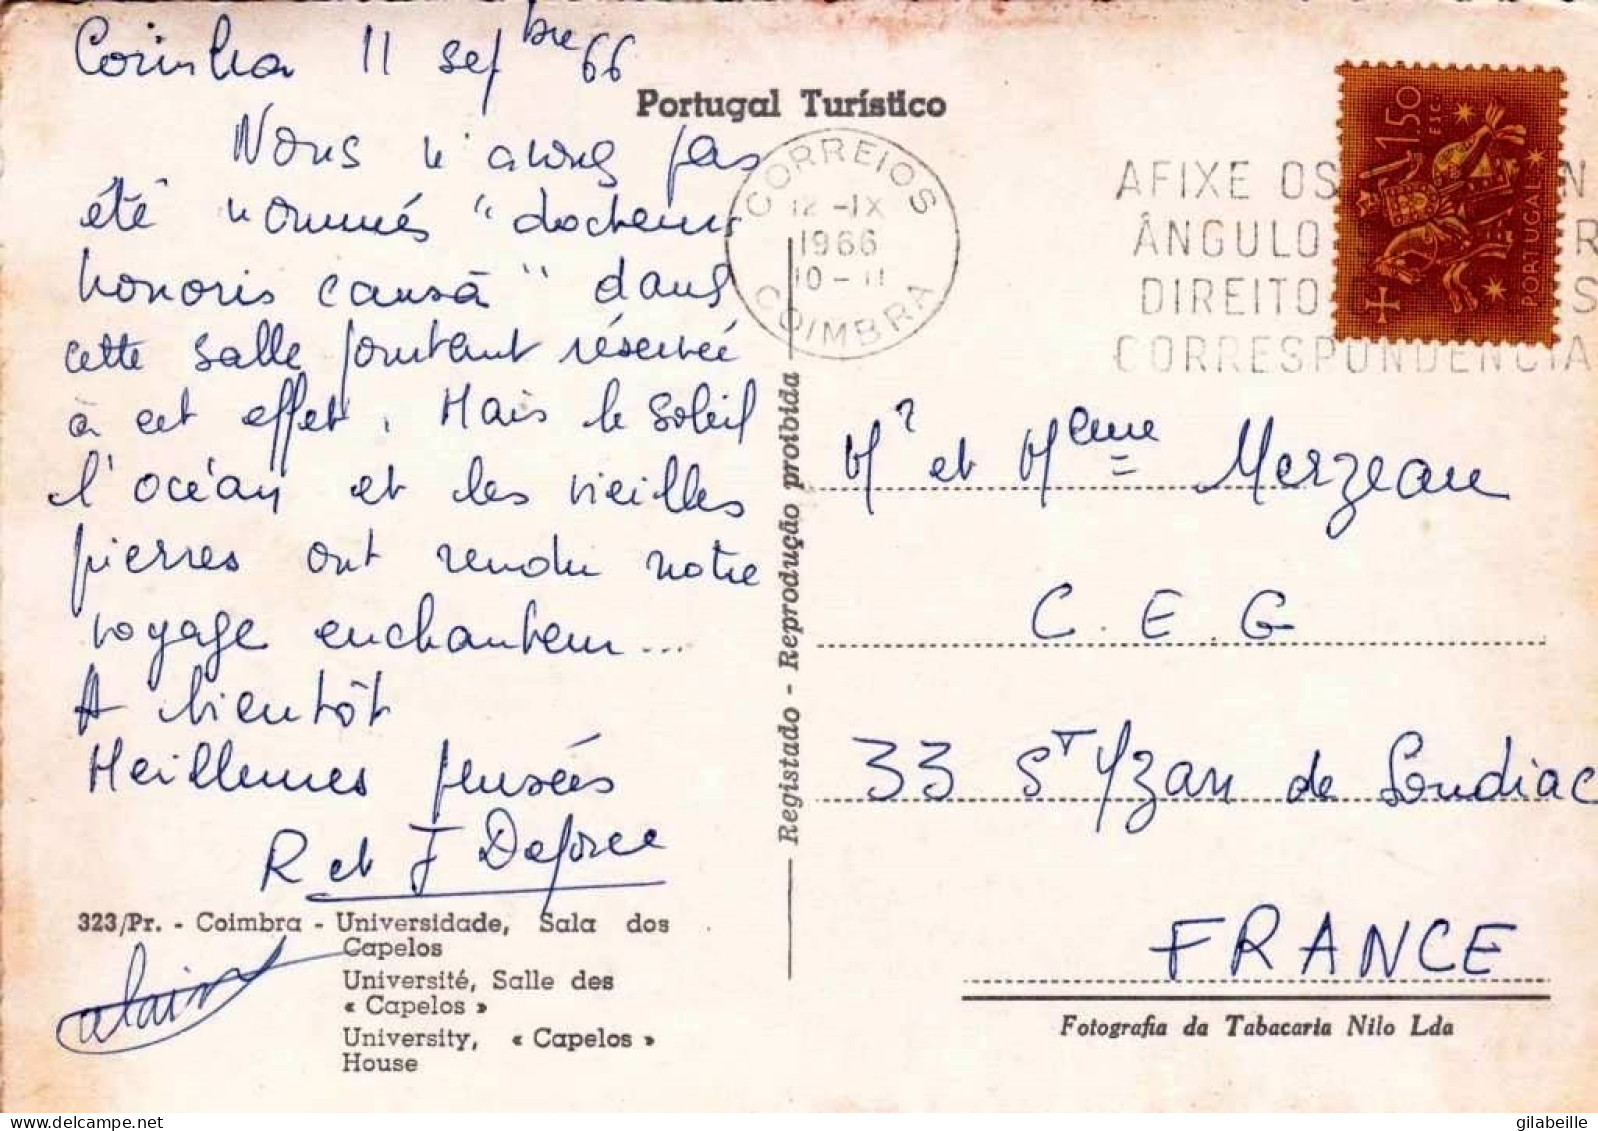 Coimbra 11 sepbre 66
Nous n'avons pas
été nommés "docteurs
honoris causa" dans
cette salle pourtant réservée
à cet effet. Mais le soleil
l'océan et les vieilles
pierres ont rendu notre
voyage enchanteur...
A bientôt
Meilleures pensées
R et J Deforce
alain
323/Pr. - Coimbra - Universidade, Sala dos
Capelos
Université, Salle des
« Capelos »
University, « Capelos »
House
Portugal Turístico
CORREIOS
12 -IX
1966
10 - 11
COIMBRA
AFIXE OS
ÂNGULO
DIREITO
CORRESPONDENCIA
1.50
ESC.
PORTUGAL
Registado - Reprodução proibida
Mr et Mme Merzeau
C.E.G
33 St Yzan de Soudiac
FRANCE
Fotografia da Tabacaria Nilo Lda
delcampe.net
gilabeille